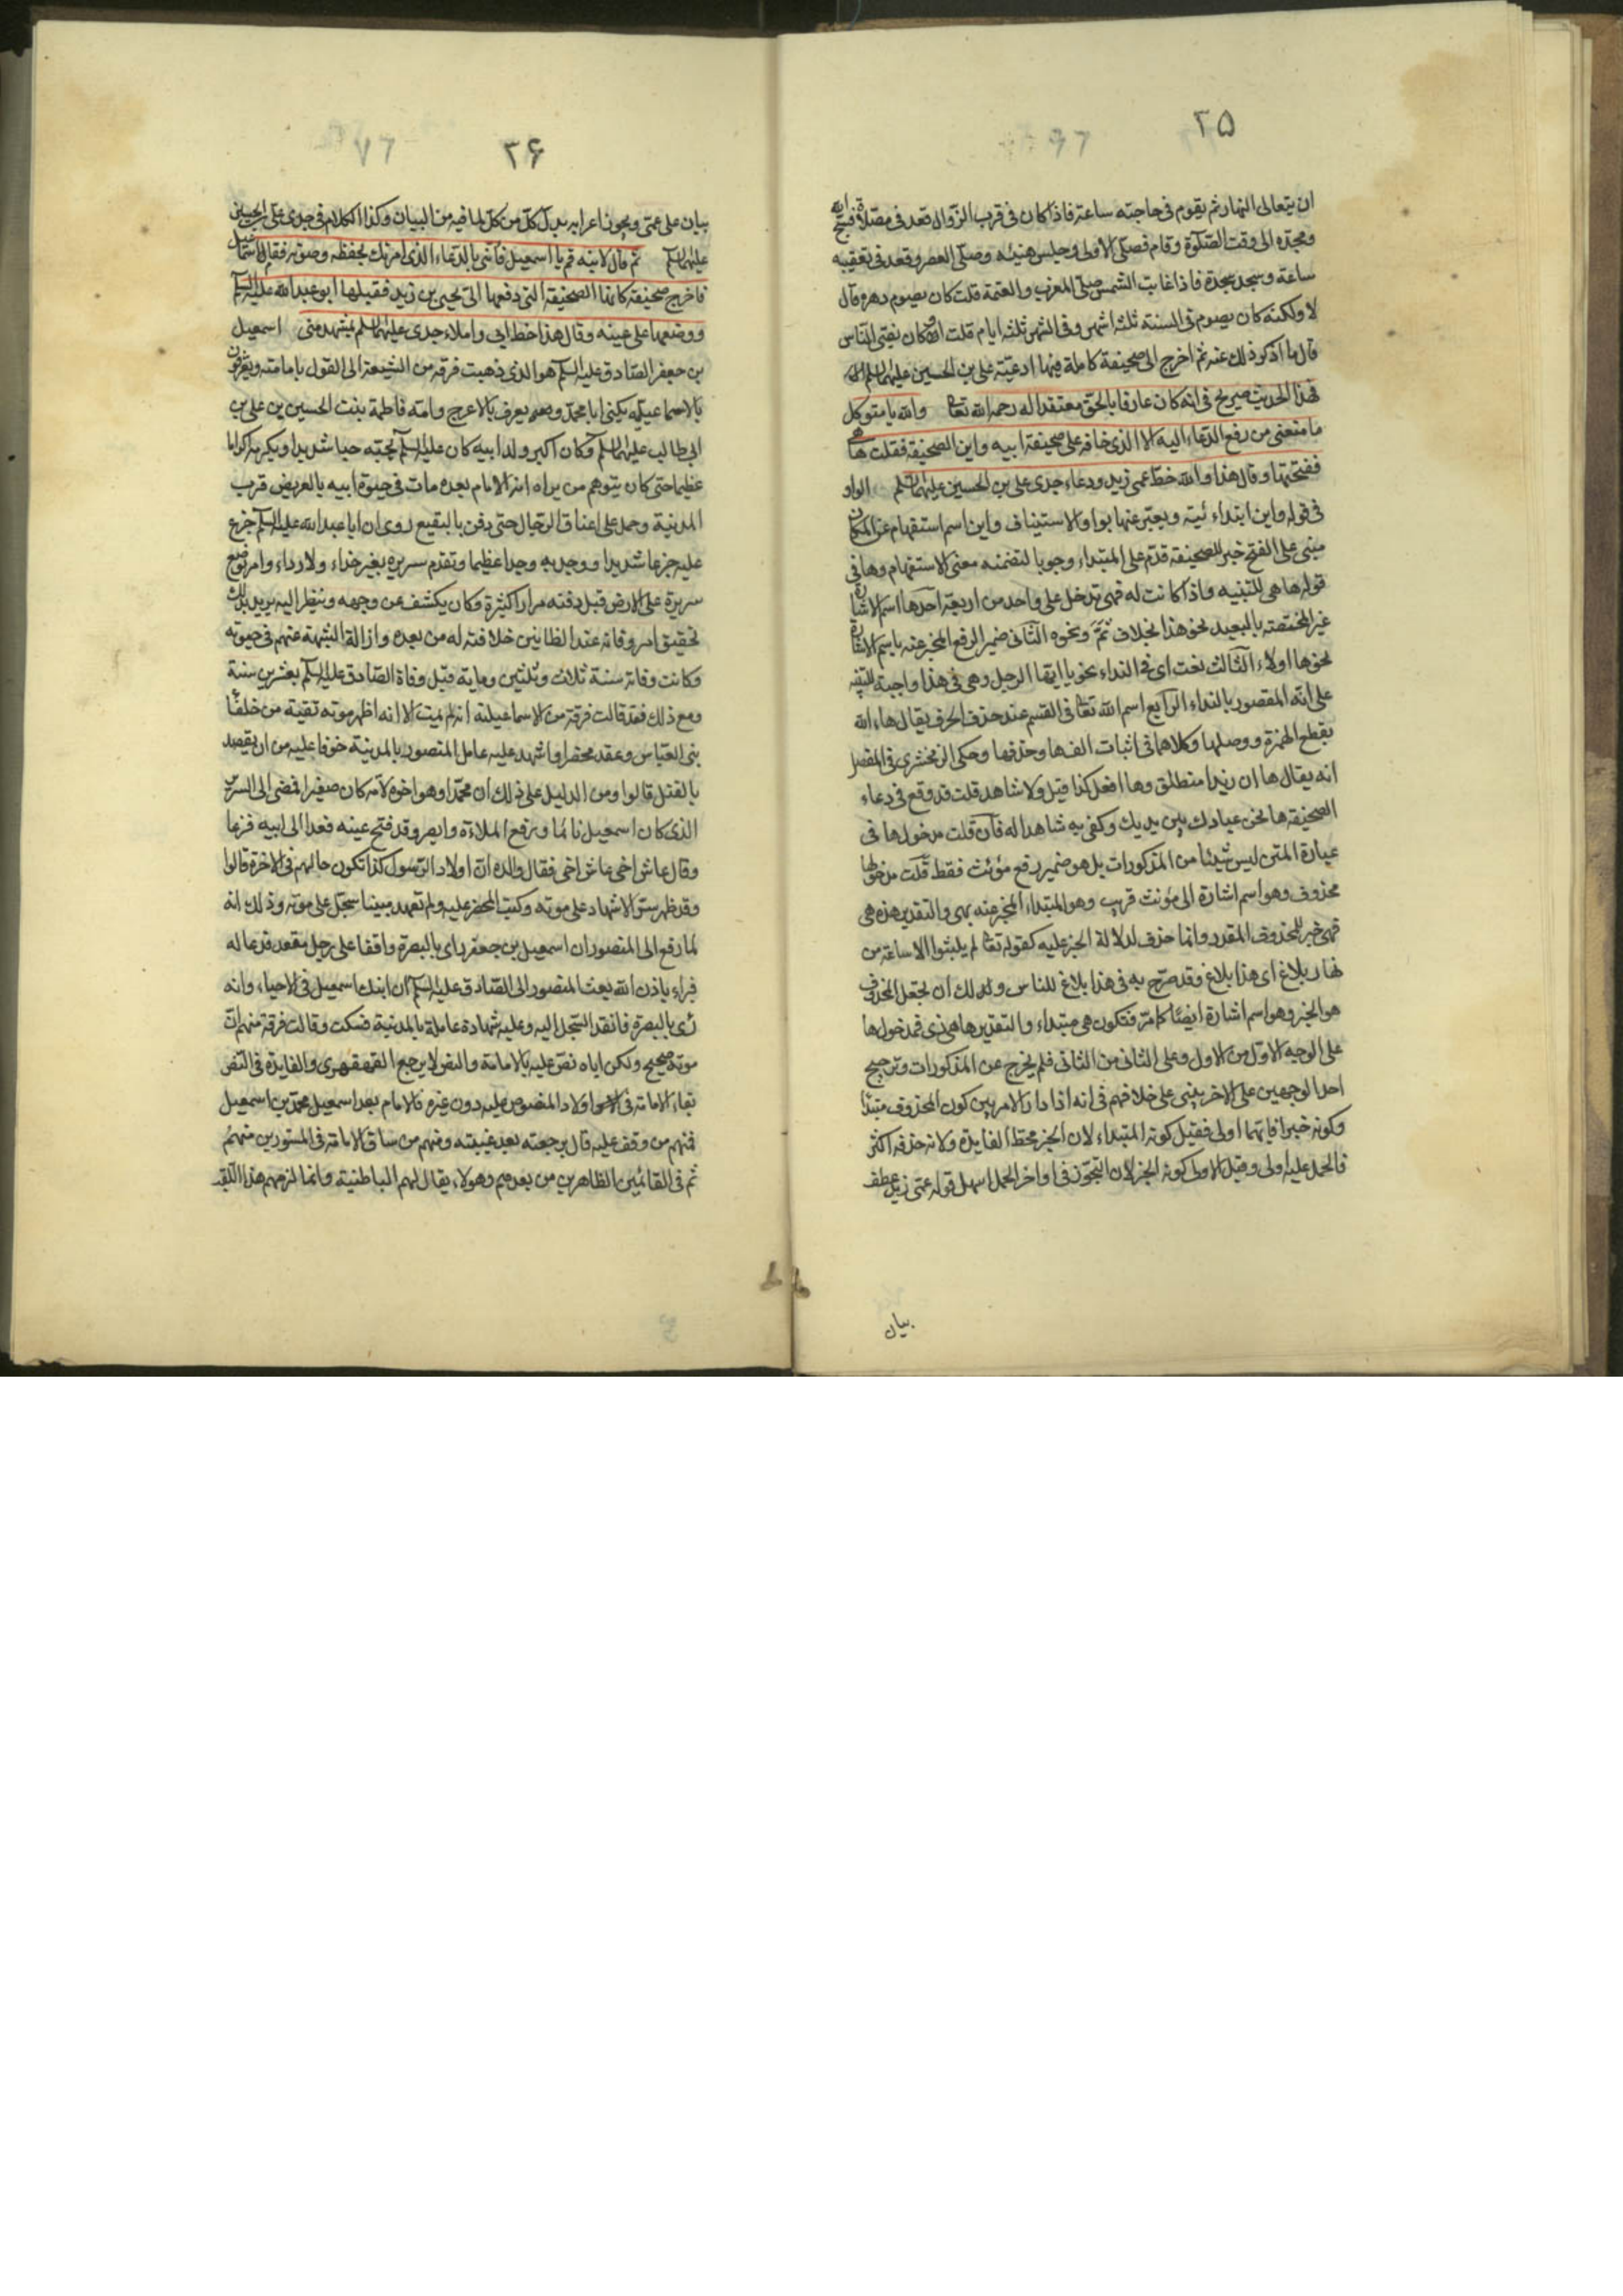 ٣۵
ان يتعالى النهار ثم يقوم فى حاجته ساعة فاذا كان فى قرب الزوال قعد فى مصلاه فسبح الله
ومجده الى وقت الصلوة وقام فصلى الاولى وجلس هنيئه وصلى العصر وقعد فى تعقيبه
ساعة وسجد سجدة فاذا غابت الشمس صلى المغرب والعتمة قلت كان يصوم دهره قال
لا ولكنه كان يصوم فى السنة ثلثه اشهر وفى الشهر ثلثه ايام قلت وكان يفتى الناس
قال ما اذكر ذلك عنه ثم اخرج الى صحيفة كاملة فيها ادعية على بن الحسين عليهما السلم
فهذا الحديث صريح فى انه كان عارفا بالحق معتقدا له رحمه الله تعا والله يا متوكل
ما منعنى من رفع الدعاء اليه الا الذى خافه على صحيفة ابيه واين الصحيفة فقلت ها هى
ففتحتها وقال هذا والله خط عمى زيد ودعاء جدى على بن الحسين عليهما السلم الواو
فى قوله واين ابتداء ئية ويعبر عنها بواو الاستيناف واين اسم استفهام عن المكان
مبنى على الفتح خبر للصحيفة قدم على المبتداء وجوبا لتضمنه معنى الاستفهام وها فى
قوله ها هى للتنبيه واذا كانت له فهى تدخل على واحد من اربعة احدها اسم الاشارة
غير المختصة بالبعيد نحو هذا بخلاف ثم ونحوه الثانى ضمير الرفع المخبر عنه باسم الاشارة
نحو ها اولاء الثالث نعت اى فى النداء نحو يا ايها الرجل وهى فى هذا واجبة للتنبيه
على انه المقصود بالنداء الرابع اسم الله تعا فى القسم عند حذف الحرف يقال هاء الله
بقطع الهمزة ووصلها وكلاهما فى اثبات الفها وحذفها وحكى الزمخشرى فى المفصل
انه يقال ها ان زيدا منطلق وها افعل كذا قيل ولا شاهد قلت قد وقع فى دعاء
الصحيفة ها نحن عبادك بين يديك وكفى به شاهدا له فان قلت مدخول ها فى
عبارة المتن ليس شيئا من المذكورات بل هو ضمير رفع مؤنث فقط قلت مدخولها
محذوف وهو اسم اشارة الى مؤنث قريب وهو المبتداء المخبر عنه بهى والتقدير هذه هى
فهى خبر للمحذوف المقدر وانما حذف لدلالة الخبر عليه كقوله تعا لم يلبثوا الا ساعة من
نهار بلاغ اى هذا بلاغ وقد صرح به فى هذا بلاغ للناس ولك ان تجعل المحذوف
هو الخبر وهو اسم اشارة ايضا كما مر فتكون هى مبتداء والتقدير ها هى ذى فمدخول ها
على الوجه الاول من الاول وعلى الثانى من الثانى فلم يخرج عن المذكورات وترجيح
احد الوجهين على الاخر يبنى على خلافهم فى انه اذا دار الامر بين كون المحذوف مبتدا
وكونه خبرا فايهما اولى فقيل كونه المبتداء لان الخبر محط الفايدة ولانه حذفه اكثر
فالحمل عليه اولى وقيل الاولى كونه الخبر لان التجوز فى اواخر الجمل اسهل قوله عمى زيد عطف
بيان
٣۶
بيان على عمى ويجوز اعرابه بدل كل من كل لما فيه من البيان وكذا الكلام فى جدى على بن الحسين
عليهما السلم ثم قال لابنه قم يا اسمعيل فأتنى بالدعاء الذى امرتك بحفظه وصونه فقام اسمعيل
فاخرج صحيفة كانها الصحيفة التى دفعها الى يحيى بن زيد فقبلها ابو عبد الله عليه السلم
ووضعها على عينه وقال هذا خط ابى واملاء جدى عليهما السلم بمشهد منى اسمعيل
بن جعفر الصادق عليه السلم هو الذى ذهبت فرقة من الشيعة الى القول بامامته ويعرفون
بالاسماعيليه يكنى ابا محمد ويعرف بالاعرج وامه فاطمة بنت الحسين بن على بن
ابى طالب عليهما السلم وكان اكبر ولد ابيه كان عليه السلم يحبه حبا شديدا ويكرمه اكراما
عظيما حتى كان يتوهم من يراه انه الامام بعده مات فى حيوة ابيه بالعريض قرب
المدينة وحمل على اعناق الرجال حتى دفن بالبقيع روى ان ابا عبد الله عليه السلم جزع
عليه جزعا شديدا ووجد به وجدا عظيما وتقدم سريره بغير حذاء ولا رداء وامر بوضع
سريرة على الارض قبل دفنه مرارا كثيرة وكان يكشف عن وجهه وينظر اليه يريد بذلك
تحقيق امر وفاته عند الظانين خلافته له من بعده وازالة الشبهة عنهم فى حيوته
وكانت وفاته سنة ثلاث وثلثين وماية قبل وفاة الصادق عليه السلم بعشرين سنة
ومع ذلك فقد قالت فرقة من الاسماعيلية انه لم يمت الا انه اظهر موته تقية من خلفاء
بنى العباس وعقد محضرا واشهد عليه عامل المنصور بالمدينة خوفا عليه من ان يقصد
بالقتل قالوا ومن الدليل على ذلك ان محمدا وهو اخوه لامه كان صغيرا فمضى الى السرير
الذى كان اسمعيل نائما ورفع الملاءة وابصره وقد فتح عينه فعدا الى ابيه فزعا
وقال عاش اخى عاش اخى فقال والده ان اولاد الرسول كذا تكون حالهم فى الاخرة قالوا
وقد ظهر ستر الاشهاد على موته وكتب المحضر عليه ولم نعهد ميتا سجل على موته وذلك انه
لما رفع الى المنصور ان اسمعيل بن جعفر راى بالبصرة واقفا على رجل مقعد فدعا له
فبراء باذن الله بعث المنصور الى الصادق عليه السلم ان ابنك اسمعيل فى الاحياء وانه
رئى بالبصرة فانفذ السجل اليه وعليه شهادة عامله بالمدينة فسكت وقالت فرقة منهم ان
موته صحيح ولكن اباه نص عليه بالامامة والنص لا يرجع القهقهرى والفايدة فى النص
بقاء الامامة فى اولاد المنصوص عليه دون غيره فالامام بعد اسمعيل محمد بن اسمعيل
فمنهم من وقف عليه قال برجعته بعد غيبته ومنهم من ساق الامامة فى المستورين منهم
ثم فى القائمين الظاهرين من بعدهم وهولاء يقال لهم الباطنية وانما لزمهم هذا اللقب